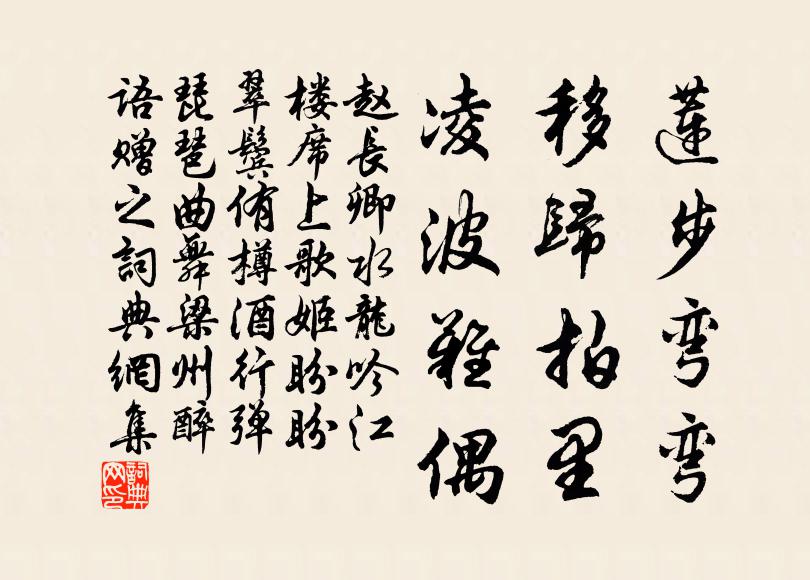 蓮步弯弯
移歸拍里
凌波難偶
赵長卿水龍吟江
楼席上歌姬盼盼
翠鬟侑樽酒行弹
琵琶曲舞梁州醉
語赠之詞典網集
詞典網印